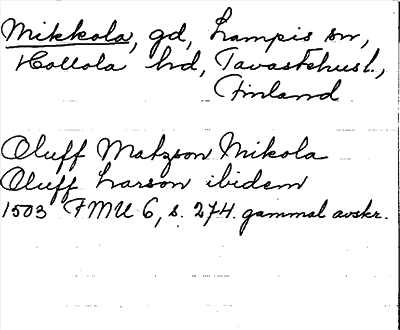 Mikkola, gd, Lampis sn,
Hollola hd, Tavastehusl.,
Finland
Oluff Matzson Mikola
Oluff Larson ibidem
1503 FMU 6, s. 274. gammal avskr.